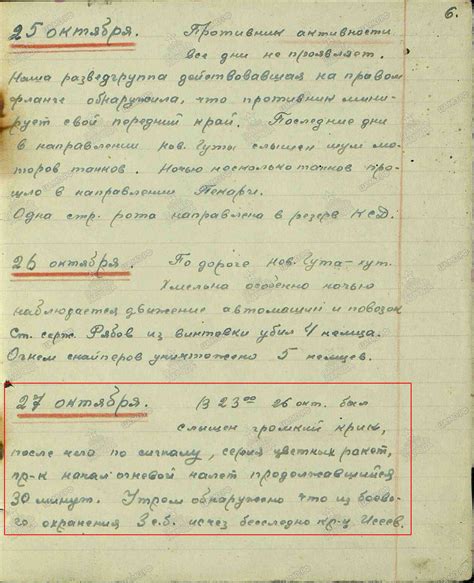 6.
25 октября. Противник активности
все дни не проявляет.
Наша разведгруппа действовавшая на правом
фланге обнаружила, что противник мини-
рует свой передний край. Последние дни
в направлении нов. Гуты слышен шум мо-
торов танков. Ночью несколько танков про-
шло в направлении Пекари.
Одна стр. рота направлена в резерв КСД.
26 октября. По дороге нов. Гута - хут.
Хмельна особенно ночью
наблюдается движение автомашин и повозок
Ст. серж. Рябов из винтовки убил 4 немца.
Огнем снайперов уничтожено 5 немцев.
27 октября. В 23 00 26 окт. был
слышен громкий крик,
после чего по сигналу, серия цветных ракет,
пр-к начал огневой налет продолжавшийся
30 минут. Утром обнаружено что из боево-
го охранения 3 с.б. исчез бесследно кр-ц Исаев.